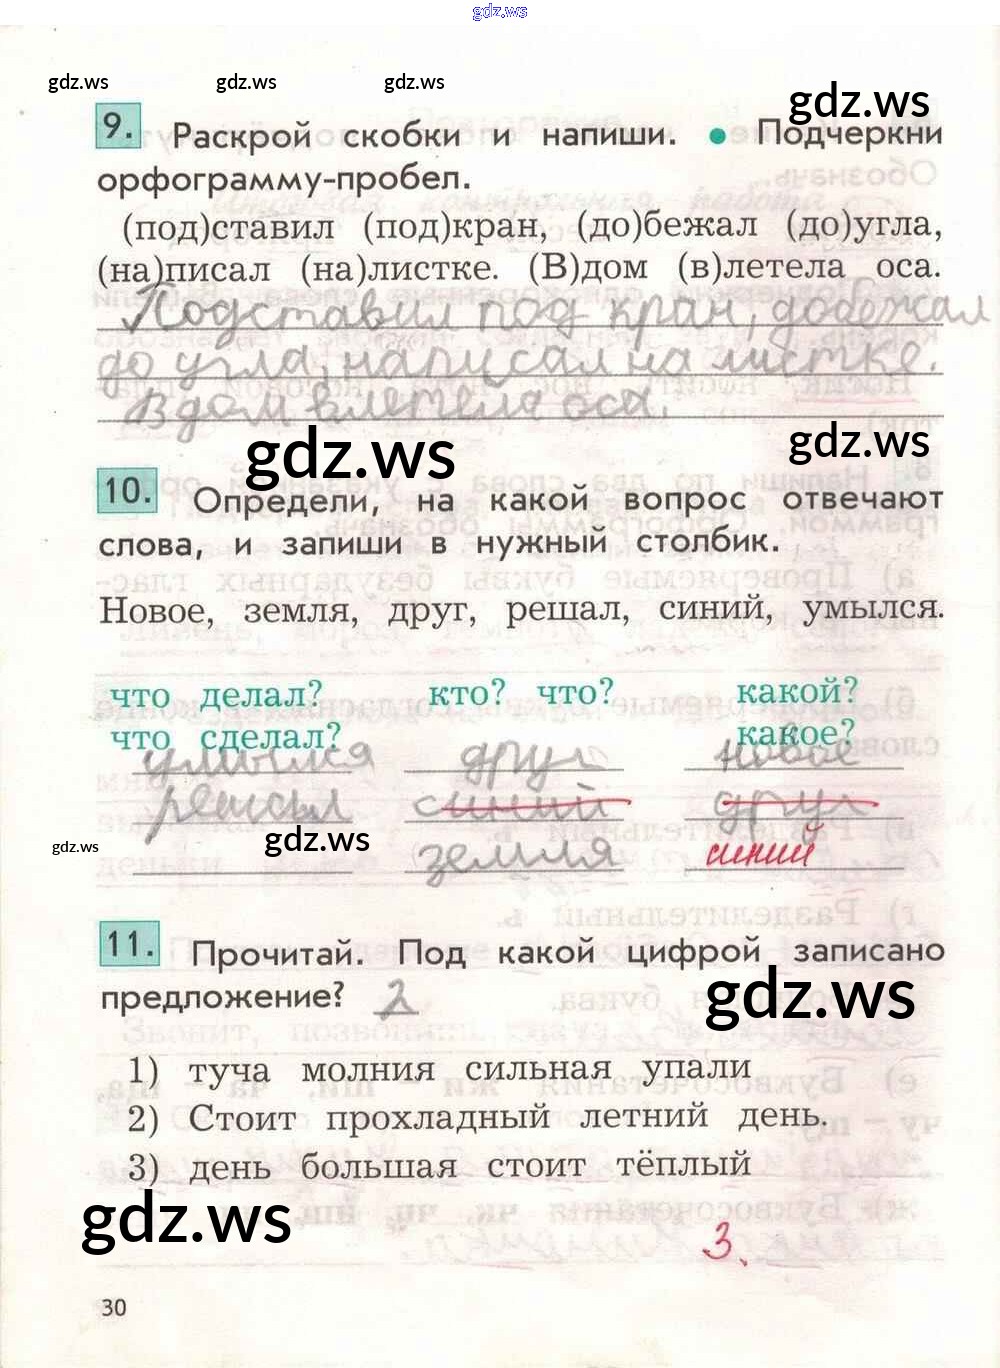 gdz.ws
gdz.ws gdz.ws gdz.ws
gdz.ws
9. Раскрой скобки и напиши. • Подчеркни
орфограмму-пробел.
(под)ставил (под)кран, (до)бежал (до)угла,
(на)писал (на)листке. (В)дом (в)летела оса.
Подставил под кран, добежал
до угла, написал на листке.
В дом влетела оса.
gdz.ws gdz.ws
10. Определи, на какой вопрос отвечают
слова, и запиши в нужный столбик.
Новое, земля, друг, решал, синий, умылся.
что делал? кто? что? какой?
что сделал? какое?
умылся друг новое
решал синий друг
gdz.ws gdz.ws земля синий
11. Прочитай. Под какой цифрой записано
предложение? 2
gdz.ws
1) туча молния сильная упали
2) Стоит прохладный летний день.
3) день большая стоит тёплый
gdz.ws
3.
30